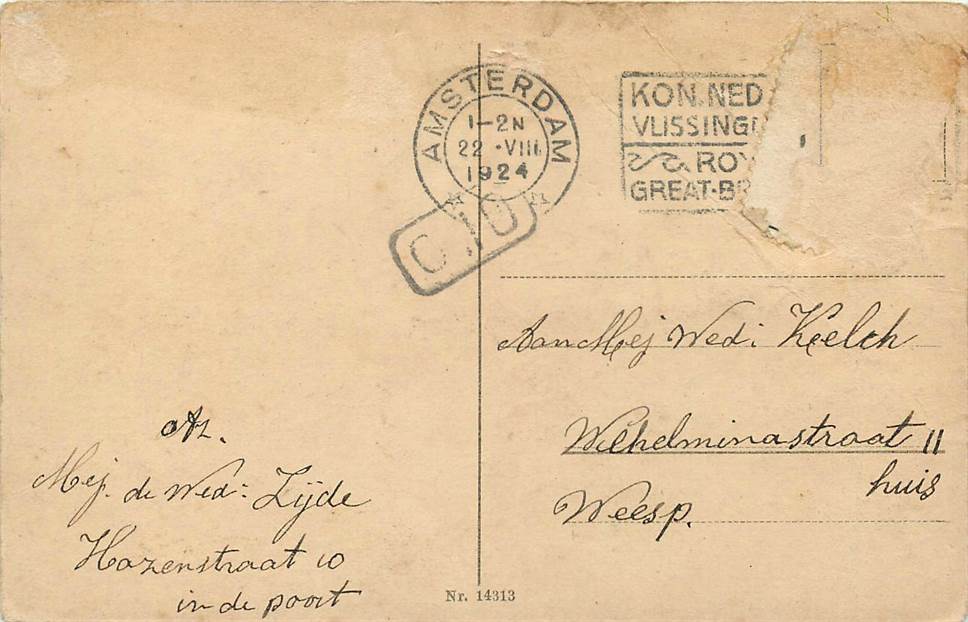 AMSTERDAM
1-2N
22 · VIII
1924
KON. NED
VLISSING
ROY
GREAT·BR
Aan Mej Wed: Keelch
Wilhelminastraat 11
huis
Weesp.
Az.
Mej. de Wed: Zijde
Hazenstraat 10
in de poort
Nr. 14313